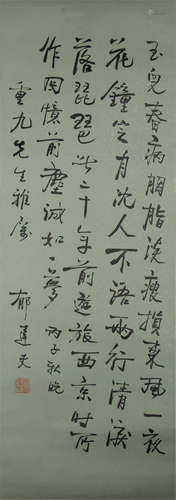 玉兒春病胭脂淡瘦損東風一夜
花鐘定月沈人不語兩行清淚
落琵琶此二十年前遊旅西京時所
作回憶前塵誠如一夢 丙子秋晚
重九先生雅屬
郁達夫